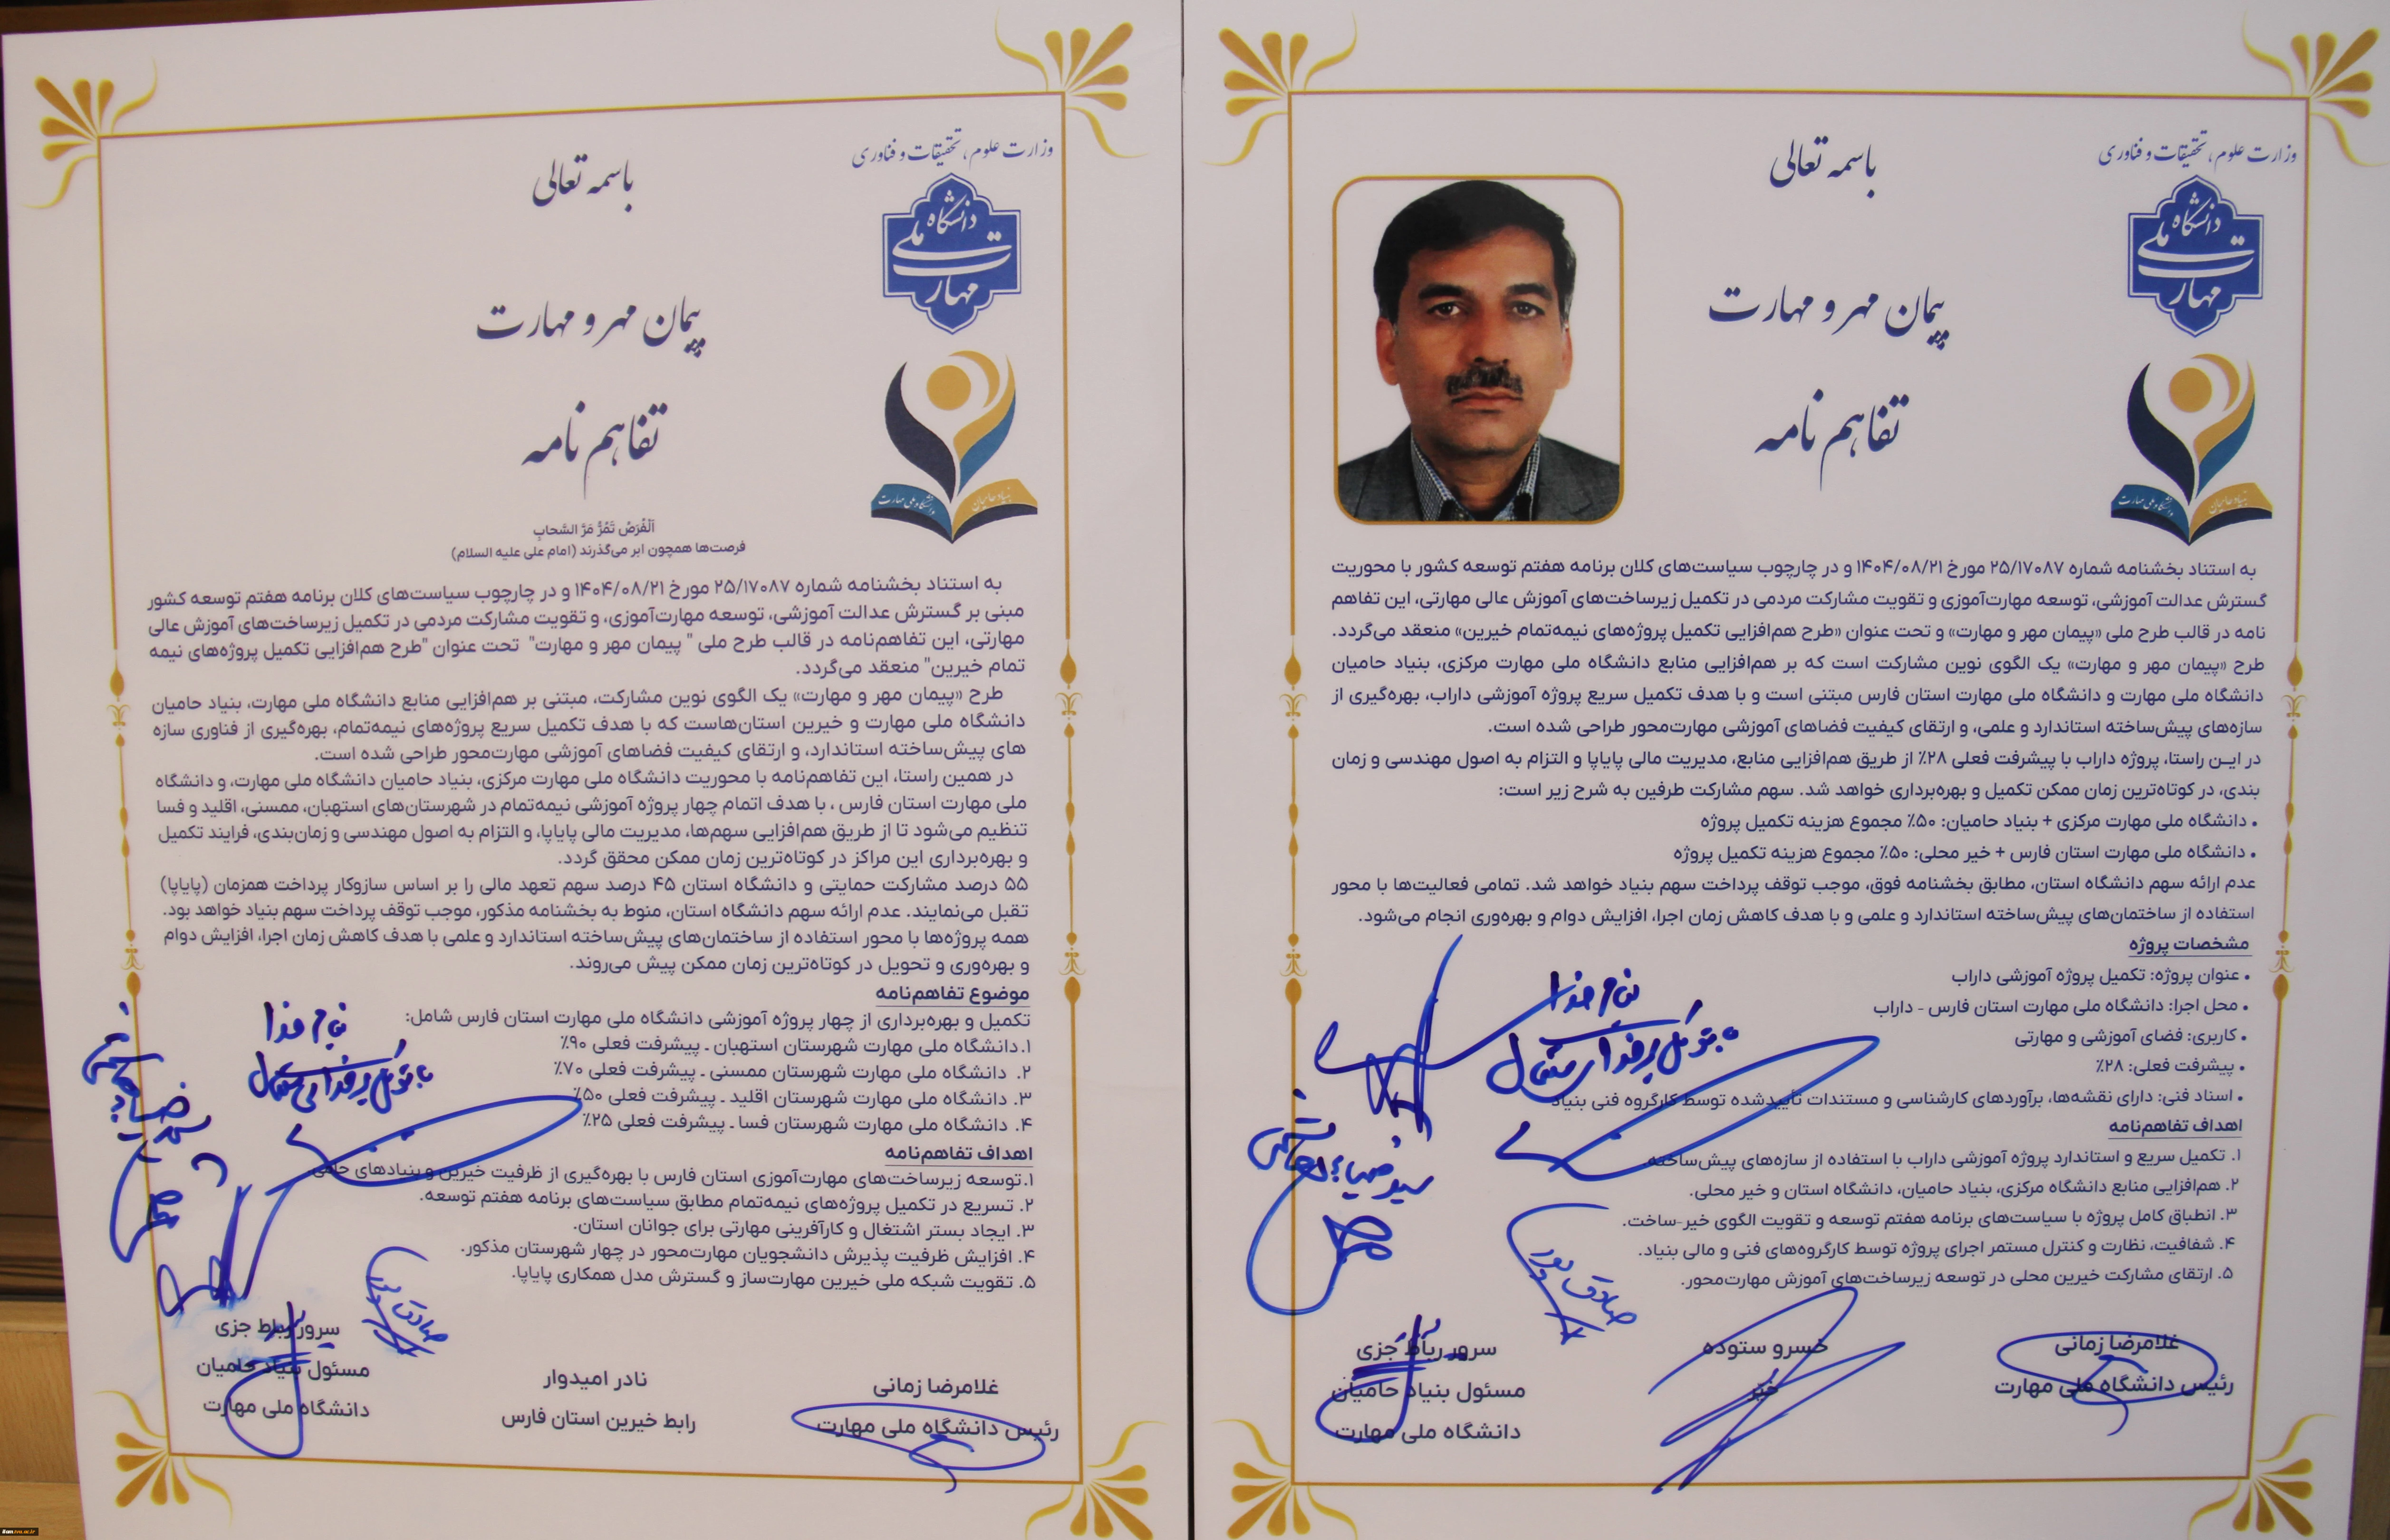 وزارت علوم، تحقیقات و فناوری
دانشگاه ملی مهارت
بنیاد حامیان دانشگاه ملی مهارت
باسمه تعالی
پیمان مهر و مهارت
تفاهم نامه
به استناد بخشنامه شماره ۲۵/۱۷۰۸۷ مورخ ۱۴۰۴/۰۸/۲۱ و در چارچوب سیاست‌های کلان برنامه هفتم توسعه کشور با محوریت
گسترش عدالت آموزشی، توسعه مهارت‌آموزی و تقویت مشارکت مردمی در تکمیل زیرساخت‌های آموزش عالی مهارتی، این تفاهم
نامه در قالب طرح ملی «پیمان مهر و مهارت» و تحت عنوان «طرح هم‌افزایی تکمیل پروژه‌های نیمه‌تمام خیرین» منعقد می‌گردد.
طرح «پیمان مهر و مهارت» یک الگوی نوین مشارکت است که بر هم‌افزایی منابع دانشگاه ملی مهارت مرکزی، بنیاد حامیان
دانشگاه ملی مهارت و دانشگاه ملی مهارت استان فارس مبتنی است و با هدف تکمیل سریع پروژه آموزشی داراب، بهره‌گیری از
سازه‌های پیش‌ساخته استاندارد و علمی، و ارتقای کیفیت فضاهای آموزشی مهارت‌محور طراحی شده است.
در ایـن راستا، پروژه داراب با پیشرفت فعلی ۲۸٪ از طریق هم‌افزایی منابع، مدیریت مالی پایاپا و التزام به اصول مهندسی و زمان
بندی، در کوتاه‌ترین زمان ممکن تکمیل و بهره‌برداری خواهد شد. سهم مشارکت طرفین به شرح زیر است:
• دانشگاه ملی مهارت مرکزی + بنیاد حامیان: ۵۰٪ مجموع هزینه تکمیل پروژه
• دانشگاه ملی مهارت استان فارس + خیر محلی: ۵۰٪ مجموع هزینه تکمیل پروژه
عدم ارائه سهم دانشگاه استان، مطابق بخشنامه فوق، موجب توقف پرداخت سهم بنیاد خواهد شد. تمامی فعالیت‌ها با محور
استفاده از ساختمان‌های پیش‌ساخته استاندارد و علمی و با هدف کاهش زمان اجرا، افزایش دوام و بهره‌وری انجام می‌شود.
مشخصات پروژه
• عنوان پروژه: تکمیل پروژه آموزشی داراب
• محل اجرا: دانشگاه ملی مهارت استان فارس - داراب
• کاربری: فضای آموزشی و مهارتی
• پیشرفت فعلی: ۲۸٪
• اسناد فنی: دارای نقشه‌ها، برآوردهای کارشناسی و مستندات تأییدشده توسط کارگروه فنی بنیاد
اهداف تفاهم‌نامه
۱. تکمیل سریع و استاندارد پروژه آموزشی داراب با استفاده از سازه‌های پیش‌ساخته.
۲. هم‌افزایی منابع دانشگاه مرکزی، بنیاد حامیان، دانشگاه استان و خیر محلی.
۳. انطباق کامل پروژه با سیاست‌های برنامه هفتم توسعه و تقویت الگوی خیر-ساخت.
۴. شفافیت، نظارت و کنترل مستمر اجرای پروژه توسط کارگروه‌های فنی و مالی بنیاد.
۵. ارتقای مشارکت خیرین محلی در توسعه زیرساخت‌های آموزش مهارت‌محور.
بنام خدا
با توکل بر خدای متعال
صادق پور
غلامرضا زمانی
رئیس دانشگاه ملی مهارت
خسرو ستوده
خیر
سرور رباط جزی
مسئول بنیاد حامیان
دانشگاه ملی مهارت
وزارت علوم، تحقیقات و فناوری
دانشگاه ملی مهارت
بنیاد حامیان دانشگاه ملی مهارت
باسمه تعالی
پیمان مهر و مهارت
تفاهم نامه
اَلْفُرَصُ تَمُرُّ مَرَّ السَّحابِ
فرصت‌ها همچون ابر می‌گذرند (امام علی علیه السلام)
به استناد بخشنامه شماره ۲۵/۱۷۰۸۷ مورخ ۱۴۰۴/۰۸/۲۱ و در چارچوب سیاست‌های کلان برنامه هفتم توسعه کشور
مبنی بر گسترش عدالت آموزشی، توسعه مهارت‌آموزی، و تقویت مشارکت مردمی در تکمیل زیرساخت‌های آموزش عالی
مهارتی، این تفاهم‌نامه در قالب طرح ملی " پیمان مهر و مهارت" تحت عنوان "طرح هم‌افزایی تکمیل پروژه‌های نیمه
تمام خیرین" منعقد می‌گردد.
طرح «پیمان مهر و مهارت» یک الگوی نوین مشارکت، مبتنی بر هم‌افزایی منابع دانشگاه ملی مهارت، بنیاد حامیان
دانشگاه ملی مهارت و خیرین استان‌هاست که با هدف تکمیل سریع پروژه‌های نیمه‌تمام، بهره‌گیری از فناوری سازه
های پیش‌ساخته استاندارد، و ارتقای کیفیت فضاهای آموزشی مهارت‌محور طراحی شده است.
در همین راستا، این تفاهم‌نامه با محوریت دانشگاه ملی مهارت مرکزی، بنیاد حامیان دانشگاه ملی مهارت، و دانشگاه
ملی مهارت استان فارس ، با هدف اتمام چهار پروژه آموزشی نیمه‌تمام در شهرستان‌های استهبان، ممسنی، اقلید و فسا
تنظیم می‌شود تا از طریق هم‌افزایی سهم‌ها، مدیریت مالی پایاپا، و التزام به اصول مهندسی و زمان‌بندی، فرایند تکمیل
و بهره‌برداری این مراکز در کوتاه‌ترین زمان ممکن محقق گردد.
۵۵ درصد مشارکت حمایتی و دانشگاه استان ۴۵ درصد سهم تعهد مالی را بر اساس سازوکار پرداخت همزمان (پایاپا)
تقبل می‌نمایند. عدم ارائه سهم دانشگاه استان، منوط به بخشنامه مذکور، موجب توقف پرداخت سهم بنیاد خواهد بود.
همه پروژه‌ها با محور استفاده از ساختمان‌های پیش‌ساخته استاندارد و علمی با هدف کاهش زمان اجرا، افزایش دوام
و بهره‌وری و تحویل در کوتاه‌ترین زمان ممکن پیش می‌روند.
موضوع تفاهم‌نامه
تکمیل و بهره‌برداری از چهار پروژه آموزشی دانشگاه ملی مهارت استان فارس شامل:
۱.دانشگاه ملی مهارت شهرستان استهبان ـ پیشرفت فعلی ۹۰٪
۲. دانشگاه ملی مهارت شهرستان ممسنی ـ پیشرفت فعلی ۷۰٪
۳. دانشگاه ملی مهارت شهرستان اقلید ـ پیشرفت فعلی ۵۰٪
۴. دانشگاه ملی مهارت شهرستان فسا ـ پیشرفت فعلی ۲۵٪
اهداف تفاهم‌نامه
۱.توسعه زیرساخت‌های مهارت‌آموزی استان فارس با بهره‌گیری از ظرفیت خیرین و بنیادهای حامی.
۲. تسریع در تکمیل پروژه‌های نیمه‌تمام مطابق سیاست‌های برنامه هفتم توسعه.
۳. ایجاد بستر اشتغال و کارآفرینی مهارتی برای جوانان استان.
۴. افزایش ظرفیت پذیرش دانشجویان مهارت‌محور در چهار شهرستان مذکور.
۵. تقویت شبکه ملی خیرین مهارت‌ساز و گسترش مدل همکاری پایاپا.
بنام خدا
با توکل بر خدای متعال
صادق پور
غلامرضا زمانی
رئیس دانشگاه ملی مهارت
نادر امیدوار
رابط خیرین استان فارس
سرور رباط جزی
مسئول بنیاد حامیان
دانشگاه ملی مهارت